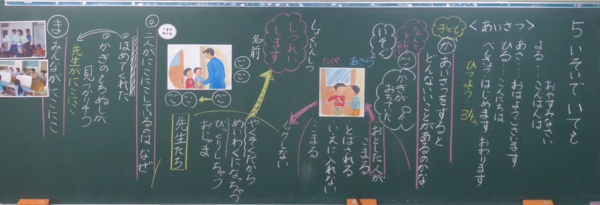 5 いそいでいても
〈あいさつ〉
あさ…おはようございます
ひる…こんにちは
よる…こんばんは
おやすみなさい
べんきょう はじめます おわります
ひつよう
か あいさつをすると
どんないいことがあるのかな
かぎが
おちてた
いそぐ
しょくいんしつ
しつれい
します
名前
おとした人が
こまる
とばされる
いえに入れない
こまる
やくそくだから
めいわくになっちゃう
びっくりしちゃう
おじゃま
先生たち
◎二人がにこにこしているのは なぜ
ほめてくれた
かぎのもちぬしが
見つかりそう
先生がにこにこ
ま みんながにこにこ